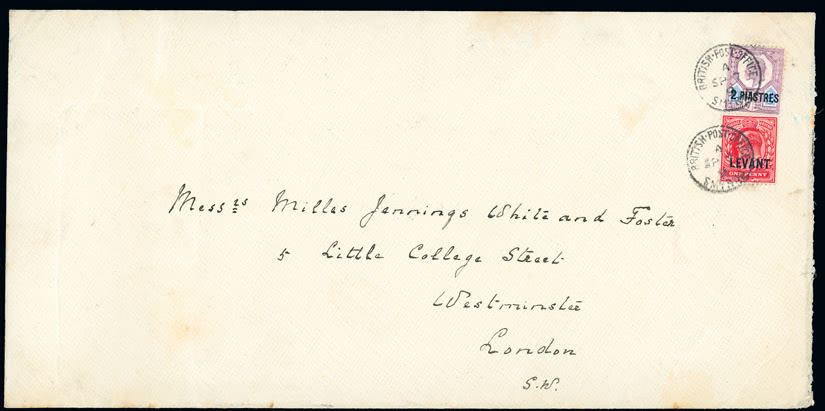 BRITISH·POST·OFFICE
A
SP
2 PIASTRES
BRITISH·POST·OFFICE
A
SP
SMYRNA
LEVANT
ONE PENNY
Messrs Milles Jennings White and Foster
5 Little College Street
Westminster
London
S.W.